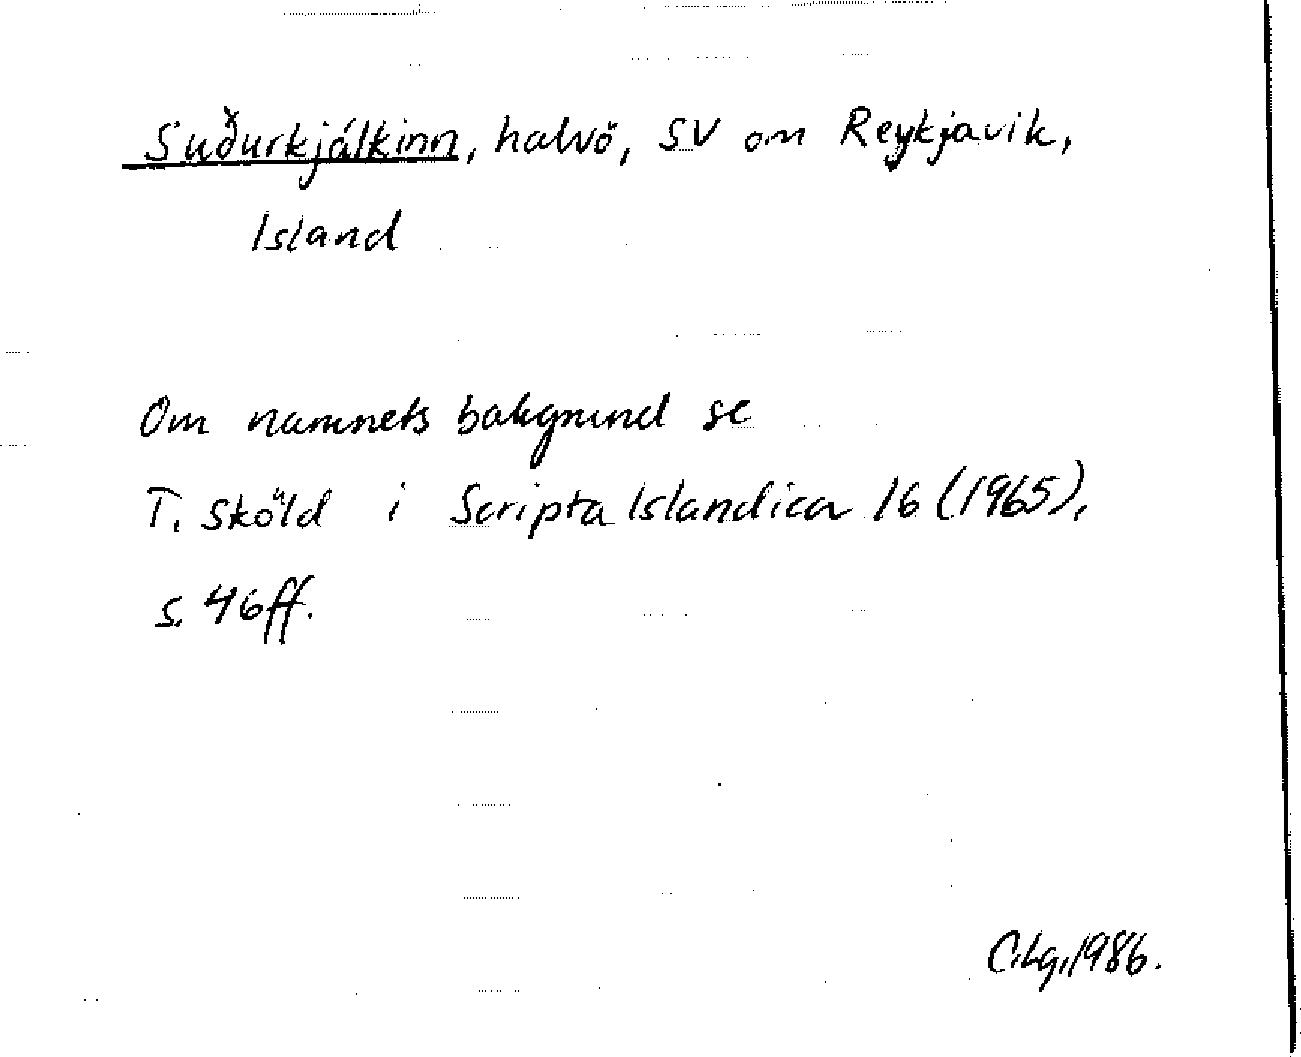 Suðurkjálkinn, halvö, SV om Reykjavik,
Island
Om namnets bakgrund se
T. Sköld i Scripta Islandica 16 (1965),
s. 46ff.
C.Lg, 1986.